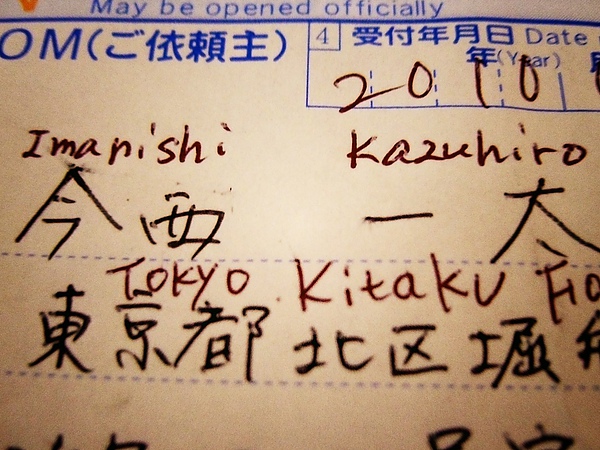 May be opened officially
OM(ご依頼主) 4 受付年月日 Date
年(Year)
2010
Imanishi Kazuhiro
今西 一大
Tokyo Kitaku
東京都 北区 堀